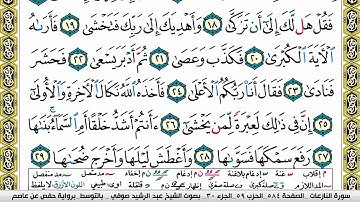 فَقُلْ هَل لَّكَ إِلَىٰٓ أَن تَزَكَّىٰ ١٨ وَأَهْدِيَكَ إِلَىٰ رَبِّكَ فَتَخْشَىٰ ١٩ فَأَرَىٰهُ
ٱلْـَٔايَةَ ٱلْكُبْرَىٰ ٢٠ فَكَذَّبَ وَعَصَىٰ ٢١ ثُمَّ أَدْبَرَ يَسْعَىٰ ٢٢ فَحَشَرَ
فَنَادَىٰ ٢٣ فَقَالَ أَنَا۠ رَبُّكُمُ ٱلْأَعْلَىٰ ٢٤ فَأَخَذَهُ ٱللَّهُ نَكَالَ ٱلْـَٔاخِرَةِ وَٱلْأُولَىٰٓ
٢٥ إِنَّ فِي ذَٰلِكَ لَعِبْرَةً لِّمَن يَخْشَىٰٓ ٢٦ ءَأَنتُمْ أَشَدُّ خَلْقًا أَمِ ٱلسَّمَآءُ بَنَىٰهَا
٢٧ رَفَعَ سَمْكَهَا فَسَوَّىٰهَا ٢٨ وَأَغْطَشَ لَيْلَهَا وَأَخْرَجَ ضُحَىٰهَا ٢٩
سورة النازعات - الصفحة ٥٨٤ - الحزب ٥٩ - الجزء ٣٠ - بصوت الشيخ عبد الرشيد صوفي - بالتوسط برواية حفص عن عاصم